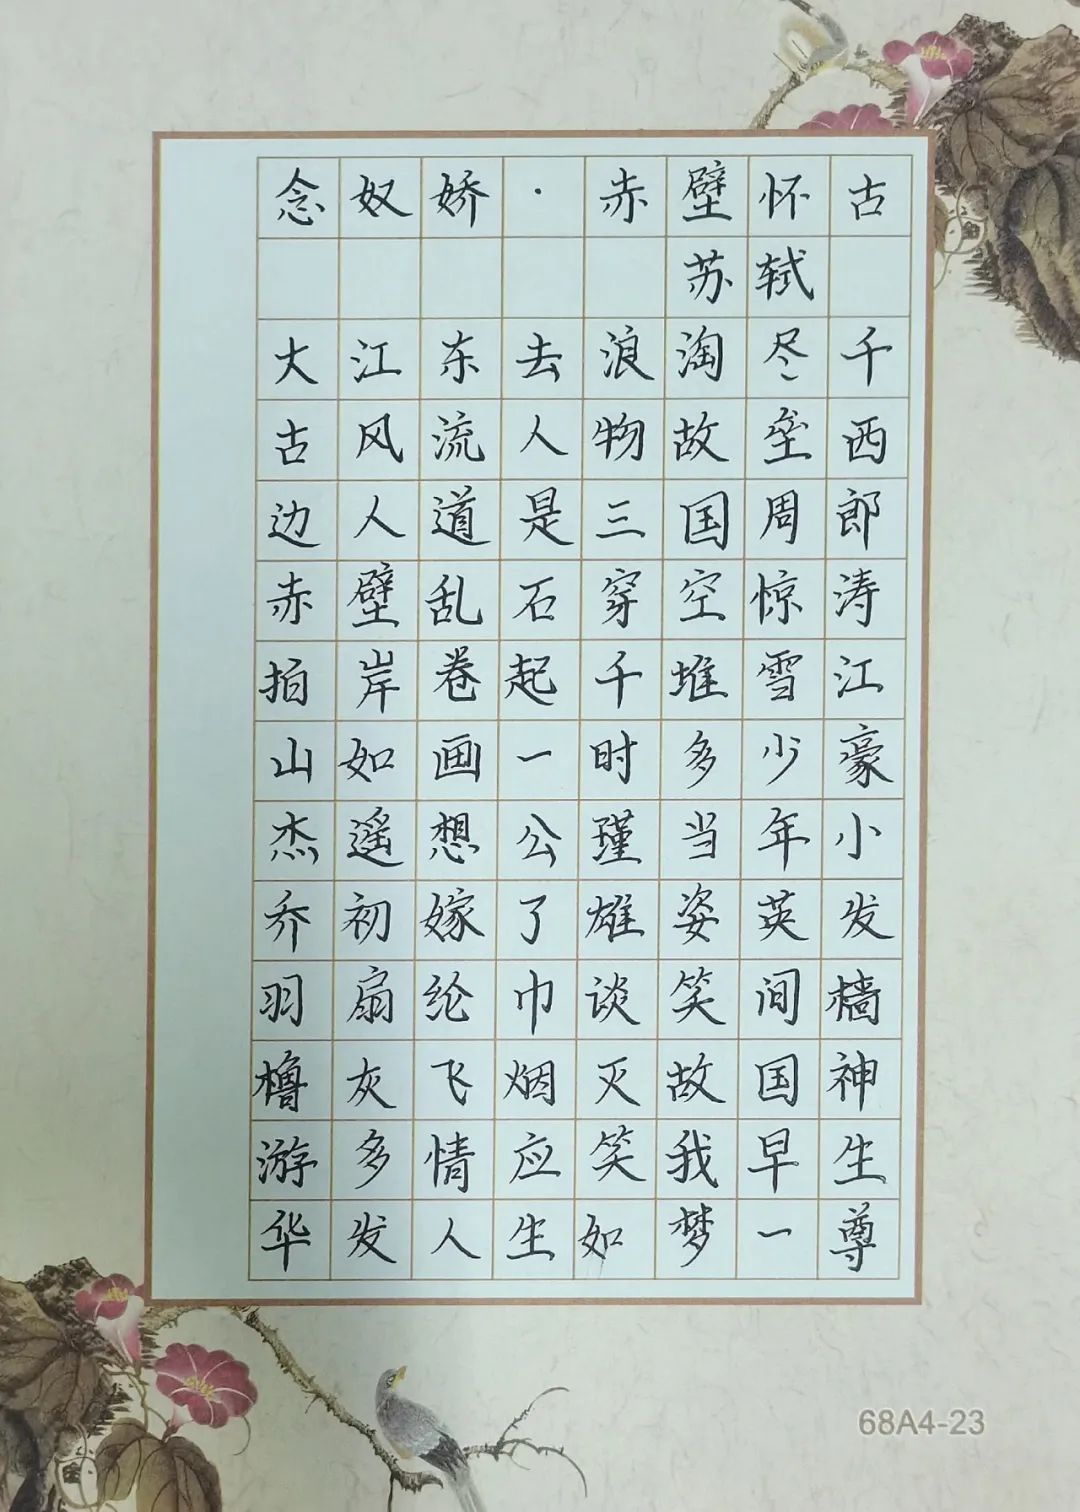 念奴娇·赤壁怀古
苏轼
大江东去浪淘尽千
古风流人物故垒西
边人道是三国周郎
赤壁乱石穿空惊涛
拍岸卷起千堆雪江
山如画一时多少豪
杰遥想公瑾当年小
乔初嫁了雄姿英发
羽扇纶巾谈笑间樯
橹灰飞烟灭故国神
游多情应笑我早生
华发人生如梦一尊
68A4-23